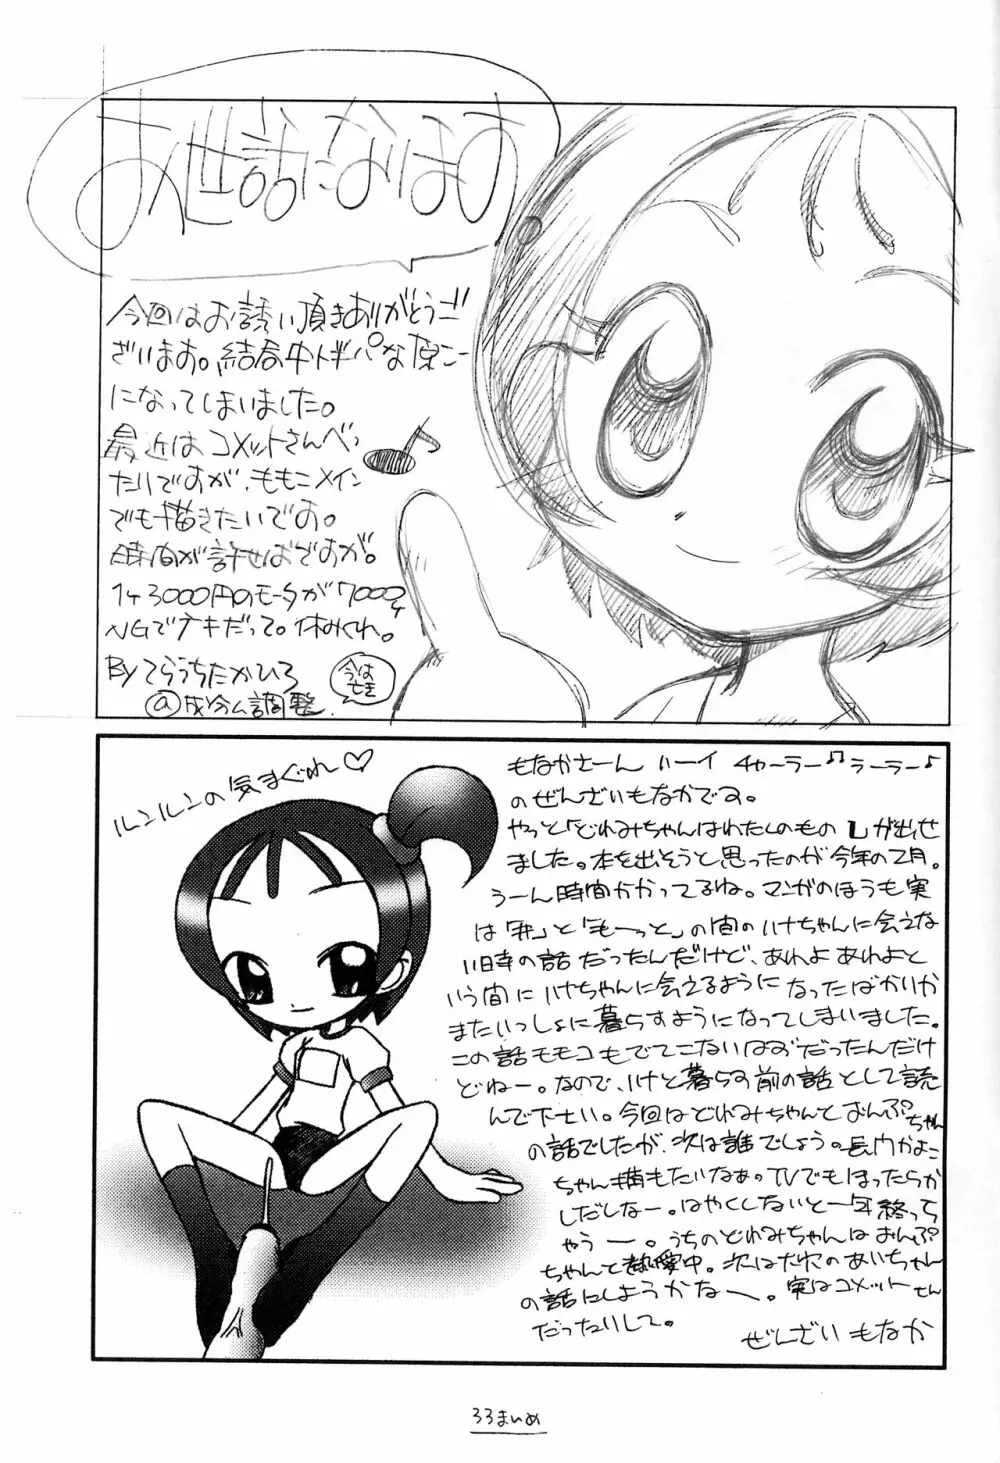 お世話になります
今回はお誘い頂きありがとうご
ざいます。結局中トギパな原こー
になってしまいました。
最近はコメットさんべっ
たりですが、ももこメイン
でも描きたいです。
時間が許せばですが。
1ヶ3000円のモータが7000ヶ
NGでナキだって。休みくれ。
Byてらうちたかひろ
@成分ム調整
今は亡き
ルンルンの気まぐれ♡
もなかさーん ハーイ チャーラー♫ラーラー♪
のぜんざいもなかです。
やっと「どれみちゃんはわたしのもの」が出せ
ました。本を出そうと思ったのが今年の2月。
うーん時間かかってるね。マンガのほうも実
は「#」と「も～っと」の間のハナちゃんに会えな
い時の話だったんだけど、あれよあれよと
いう間にハナちゃんに会えるようになったばかりか
またいっしょに暮らすようになってしまいました。
この話モモコもでてこないはずだったんだけ
どねー。なので、ハナと暮らす前の話として読
んで下さい。今回はどれみちゃんとおんぷちゃん
の話でしたが、次は誰でしょう。長門かよこ
ちゃん描もたいなぁ。TVでもほったらか
しだしなー。はやくしないと一年終っち
ゃうー。うちのどれみちゃんはおんぷ
ちゃんと熱愛中。次は穴のあいちゃん
の話にしようかなー。実はコメットさん
だったりして。
ぜんざい もなか
33まいめ